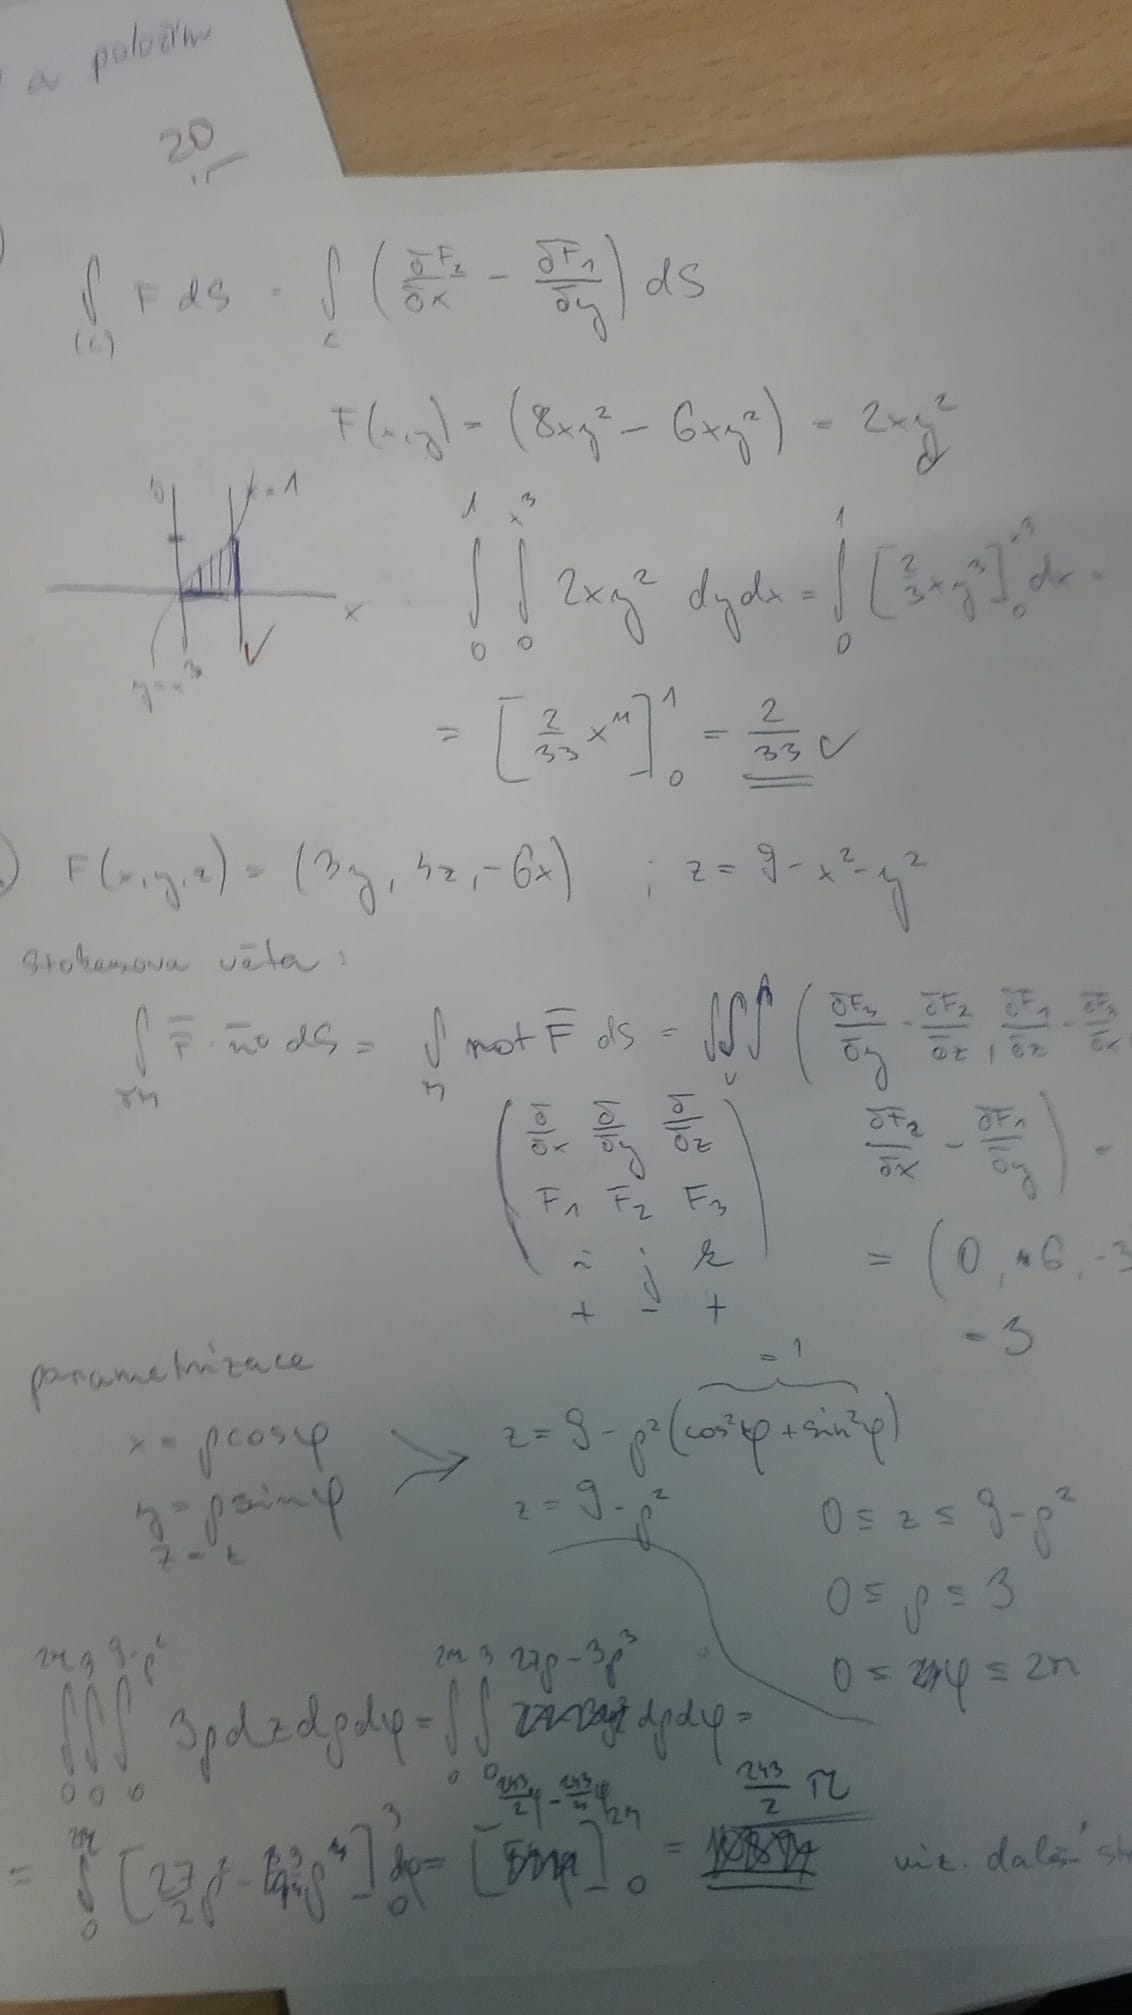 a položím
20
∫(c) F dS = ∫c (∂F₂/∂x − ∂F₁/∂y) dS
F(x,y) = (8xy² − 6xy²) = 2xy²
x=1
x
y=x³
∫₀¹ ∫₀^x³ 2xy² dydx = ∫₀¹ [2/3 xy³]₀^x³ dx =
= [2/33 x¹¹]₀¹ = 2/33 ✓
F(x,y,z) = (3y, 4z, −6x) ; z = 9 − x² − y²
Stokesova věta:
∫ F̄ · n̄⁰ dS = ∫ rot F̄ dS = ∭ (∂F₃/∂y − ∂F₂/∂z, ∂F₁/∂z − ∂F₃/∂x,
(∂/∂x ∂/∂y ∂/∂z ∂F₂/∂x − ∂F₁/∂y) =
F₁ F₂ F₃
i j k = (0, 6, −3
+ − + = 3
parametrizace = 1
x = ρcosφ z = 9 − ρ²(cos²φ + sin²φ)
y = ρsinφ z = 9 − ρ² 0 ≤ z ≤ 9 − ρ²
z = z
0 ≤ ρ ≤ 3
0 ≤ φ ≤ 2π
∫₀^2π ∫₀³ ∫₀^9−ρ² 3ρ dz dρ dφ = ∫₀^2π ∫₀³ 27ρ − 3ρ³ dρdφ =
= ∫₀^2π [27/2 ρ² − 3/4 ρ⁴]₀³ dφ = [243/2 φ − 243/4 φ]₀^2π = 243/2 π
viz. další